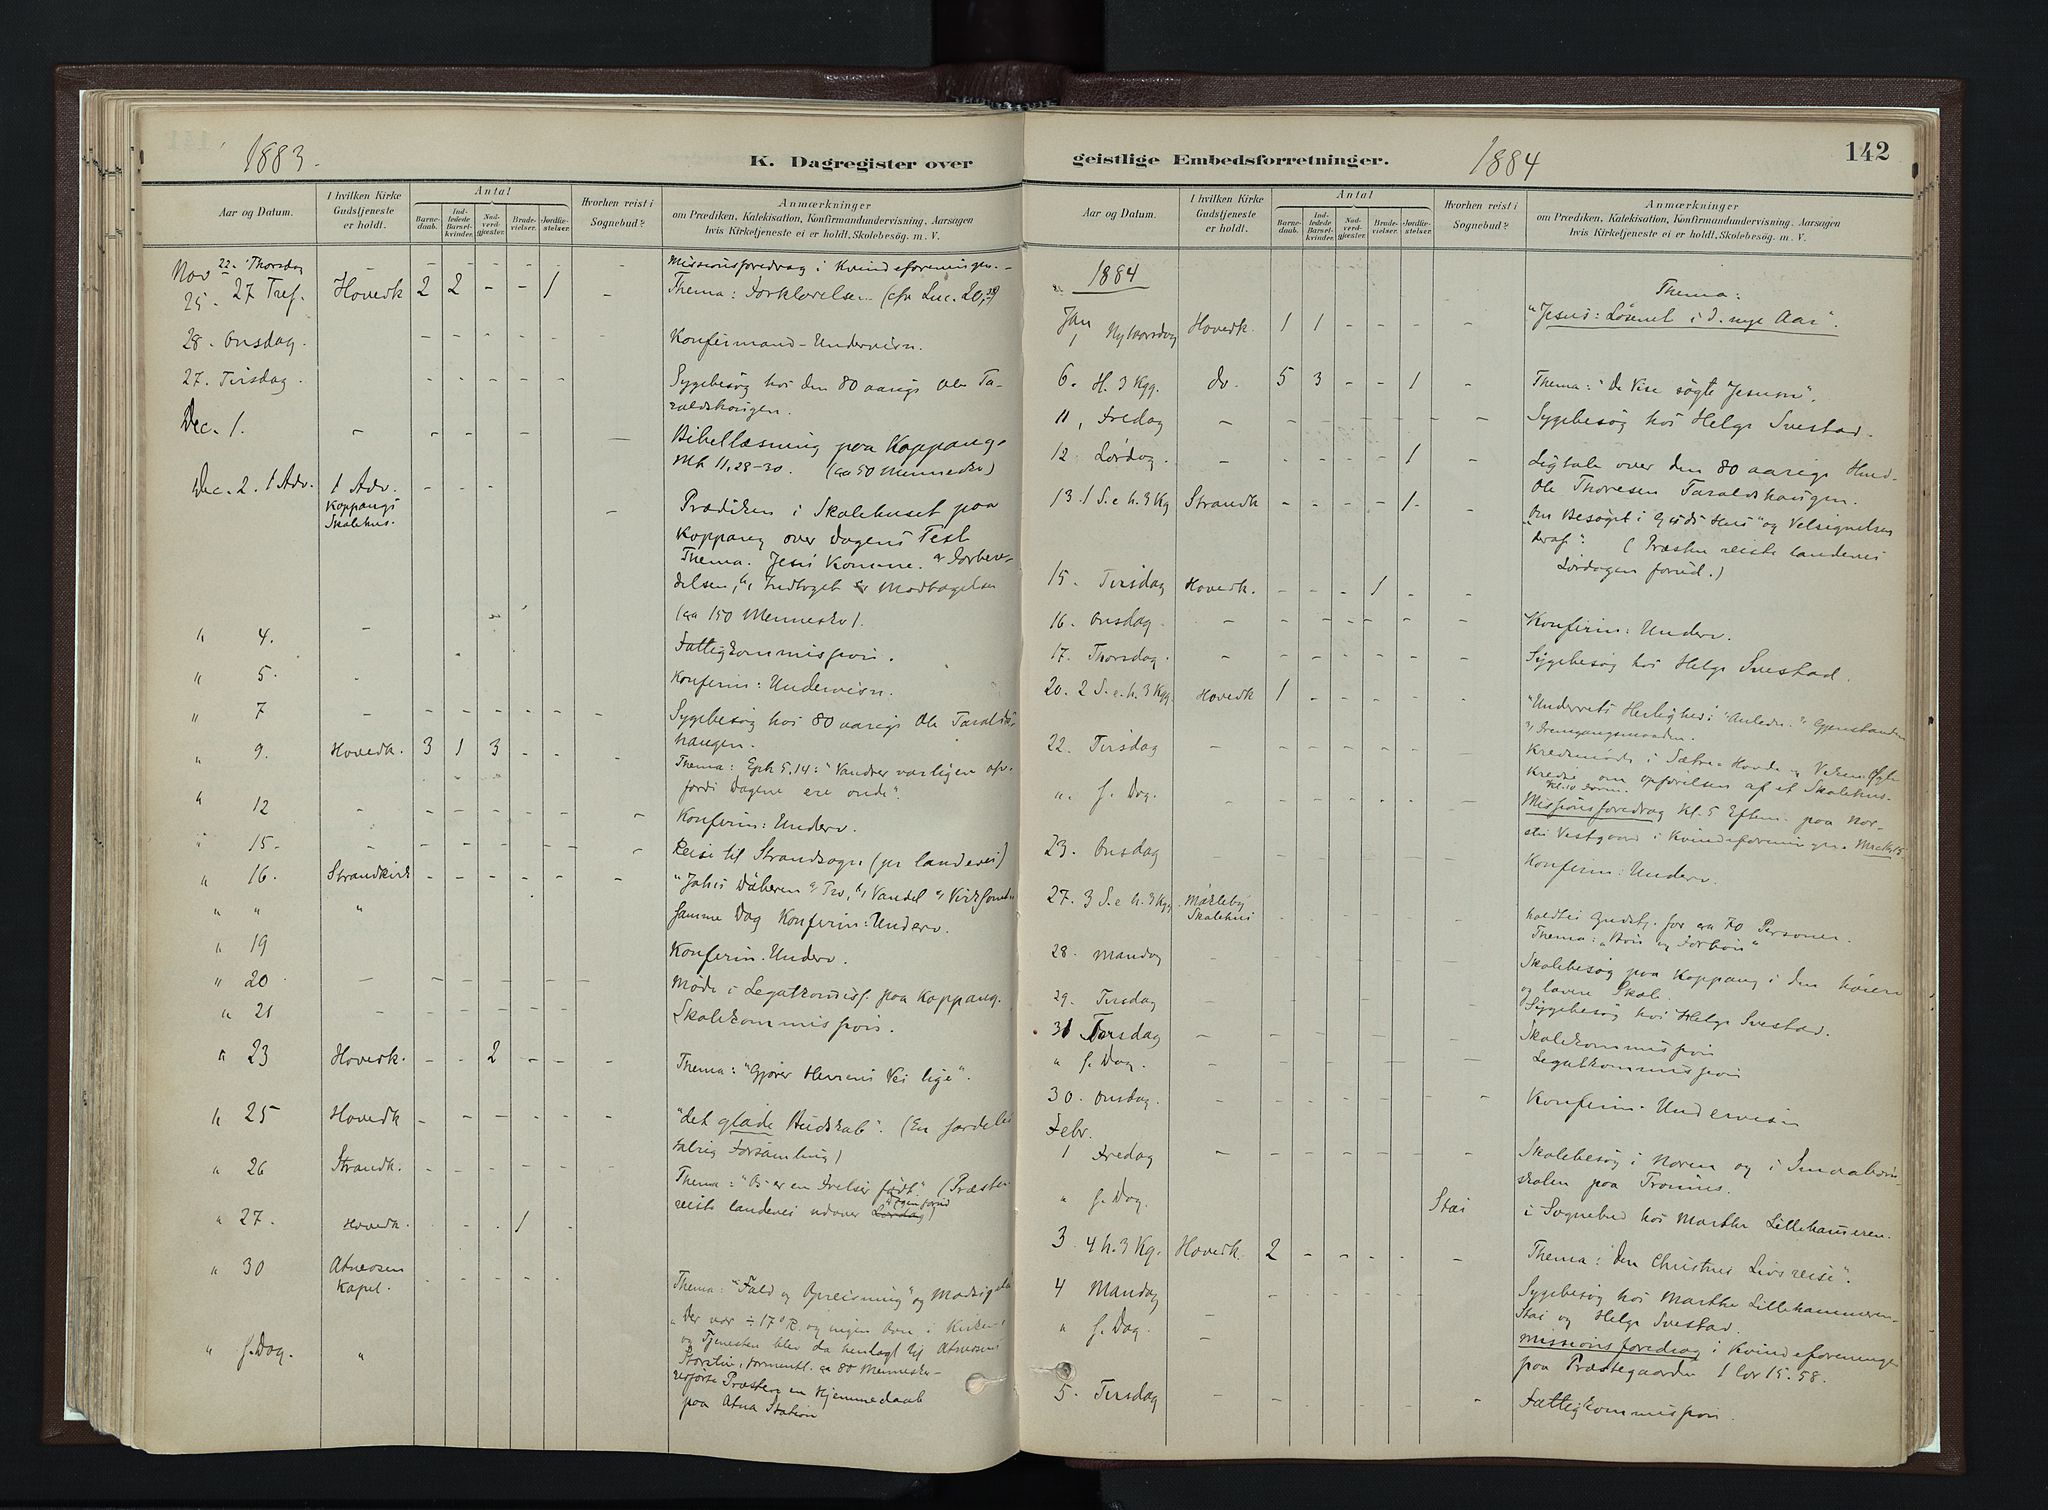 1883.
K. Dagregister over
Aar og Datum.
I hvilken Kirke Gudstjeneste er holdt.
Antal
Barne-daab.
Ind-ledede Barsel-kvinder.
Nad-verd-gjæster.
Brude-vielser.
Jordfæ-stelser.
Hvorhen reist i Sognebud?
Anmærkninger
om Prædiken, Katekisation, Konfirmandundervisning, Aarsagen
hvis Kirketjeneste ei er holdt, Skolebesøg. m. V.
Nov 22. Thorsdag - - - - - - - Missionsforedrag i Kvindeforeningen.
25. 27 Tref. Hovedk 2 2 - - 1 - Thema: Forklarelsen (cfr Luc. 20,
28. Onsdag. - - - - - - Konfirmand-Undervisn.
27. Tirsdag. - - - - - Sygebesøg hos den 80 aarige Ole Ta-
raldshaugen.
Dec. 1. - - - - - - - Bibellæsning paa Koppang.
Mth 11, 28-30. (ca 50 Mennesker)
Dec. 2. 1 Adv. 1 Adv. - - -
Koppangs Skolehus. - Prædiken i Skolehuset paa
Koppang over Dagens Text
Thema. Jesu Komme. a, Forbere-
delsen, b, Indtoget Modtagelse
(ca 150 Mennesker).
" 4. - Fattigkommission.
" 5. - Konfirm: Undervisn.
" 7 - - - - - - - Sygebesøg hos 80 aarige Ole Taralds-
haugen.
" 9. Hovedk. 3 1 3 - - - Thema: Eph 5.14: "Vandrer varligen
fordi Dagene ere onde".
" 12 - - - - - - - Konfirm: Underv.
" 15. - - - - - - - Reise til Strandsogn (pr landevei)
" 16. Strandkirk - - - - - - "Johs Døberen a, Tro, b, Vandel
" " " Samme Dag Konfirm: Underv.
" 19 Konfirm. Underv.
" 20 - - - - - - - Møde i Legatkommiss. paa Koppang.
" 21 - - - - - - Skolekommission.
" 23 Hovedk. - - 2 - - - Thema: "Gjører Herrens Vei lige".
" 25 Hovedk - - - - - - "det glade Budskab". (En
talrig Forsamling)
" 26 Strandk. - - - - - Thema: "Os er en Frelser født". (Præsten
reiste landevei udover Lørdag Dagen forud)
" 27. Hovedk. - - - 1 -
" 30 Atneosen Kapel. - - - - - Thema: "Fald og Opreisning" og
Der var ÷ 17° R. og ingen Ovn i Kirken
" s. Dag. " og Tjenesten blev da henlagt til Atneosens
ca 80 Mennesker
Præsten en Hjemmedaab
paa Atna Station
geistlige Embedsforretninger.
1884
142
Aar og Datum.
I hvilken Kirke Gudstjeneste er holdt.
Antal
Barne-daab.
Ind-ledede Barsel-kvinder.
Nad-verd-gjæster.
Brude-vielser.
Jordfæ-stelser.
Hvorhen reist i Sognebud?
Anmærkninger
om Prædiken, Katekisation, Konfirmandundervisning, Aarsagen
hvis Kirketjeneste ei er holdt, Skolebesøg. m. V.
1884
Thema:
Jan 1 Nytaarsdag Hovedk. 1 1 - - - - "Jesus: Løsenet i d. nye Aar".
6. H. 3 Kgg. do. 5 3 - - 1 - Thema: "De Vise søgte Jesum".
11, Fredag - - - - - - - Sygebesøg hos Helge Svestad.
12 Lørdag. - - - - - 1 - Ligtale over den 80 aarige
Ole Thoresen Taraldshaugen.
13. 1 S. e. h. 3 Kg Strandk - - - - 1. - Om Besøget i Guds Hus" og Velsignelsen
deraf". (Præsten reiste landevei
Lørdagen forud.)
15. Tirsdag Hovedk. - - - 1 - -
16. Onsdag. - - - - - - - Konfirm: Underv.
17. Thorsdag. - - - - - - - Sygebesøg hos Helge Svestad.
20. 2 S. e. h. 3 Kgg. Hovedk 1 - - - - - Herlighed: Anledn. Gjenstanden
Fremgangsmaaden.
22. Tirsdag - - - - - - - Kredsmøde i Sætre-
Kreds om opførelsen af et Skolehus.
Kl. 10 Form.
". s. Dag. - - - - - - Missionsforedrag kl. 5 Efterm. paa Nor-
dre Vestgaard i Kvindeforeningen.
23. Onsdag - - - - - - - Konfirm: Underv.
27. 3 S. e. h. 3 Kgg Mørkeby Skolehus - - - - - - holdtes Gudstj. for ca 70 Personer.
Thema: "Bøn og Forbøn"
28. Mandag - - - - - - - Skolebesøg paa Koppang i den høiere
og lavere Skole.
29. Tirsdag - - - - - - Sygebesøg hos Helge Svestad.
31 Torsdag - - - - - - - Skolekommission
" s. Dag. - - - - - - - Legatkommission
30. Onsdag. - - - - - - - Konfirm. Undervisn
Febr.
1 Fredag - - - - - - - Skolebesøg i Noren og i Smaabørns-
skolen paa Trønnes.
" s. Dag. - - - - - - Stai i Sognebud hos Marthe Lillehammeren.
3. 4 h. 3 Kg. Hovedk. 2 - - - - - Thema: "Den Christnes Livsreise".
4 Mandag - - - - - - Sygebesøg hos Marthe Lillehammeren
Stai og Helge Svestad.
" s. Dag. - Missionsforedrag i Kvindeforeningen
paa Præstegaarden 1 Cor 15. 58.
5. Tirsdag - - - - - - - Fattigkommission.